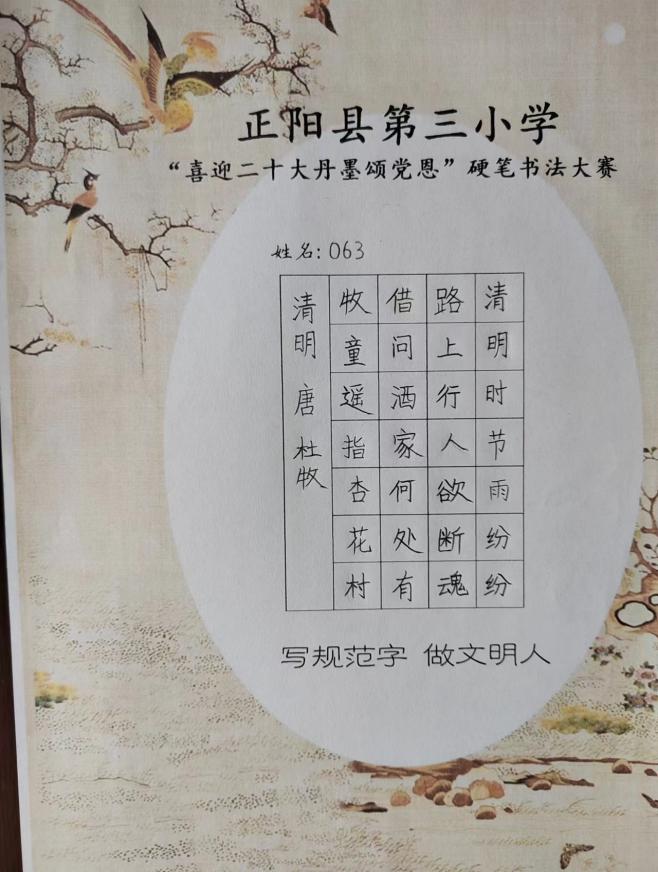 正阳县第三小学
“喜迎二十大丹墨颂党恩”硬笔书法大赛
姓名:063
清明时节雨纷纷
路上行人欲断魂
借问酒家何处有
牧童遥指杏花村
清明 唐 杜牧
写规范字 做文明人